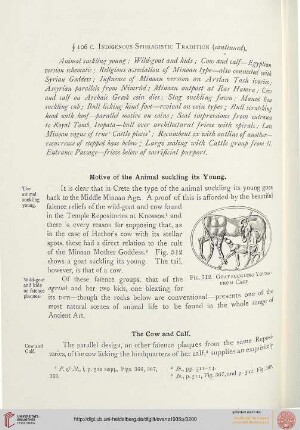 § 106 C. Indigenous Sphragistic Tradition (continued).
Animal suckling young; Wild-goat and kids; Cow and calf—Egyptian
version schematic; Religious association of Minoan type—also connected with
Syrian Goddess; Influence of Minoan version on Arslan Tash ivories;
Assyrian parallels from Nimrûd; Minoan outpost at Ras Shamra; Cow
and calf on Archaic Greek coin dies; Stag suckling fawn; Hound
suckling cub; Bull licking hind foot—revived on coin types; Bull scratching
head with hoof—parallel motive on coins; Seal impressions from entrance
to Royal Tomb, Isopata—bull over architectural frieze with spirals; Late
Minoan vogue of true 'Cattle pieces'; Recumbent ox with outline of another—
occurrence of stepped base below; Large sealing with Cattle group from N.
Entrance Passage—frieze below of sacrificial purport.
Motive of the Animal suckling its Young.
The animal suckling young.
It is clear that in Crete the type of the animal suckling its young goes
back to the Middle Minoan Age. A proof of this is afforded by the beautiful
faïence reliefs of the wild-goat and cow found
in the Temple Repositories at Knossos,¹ and
there is every reason for supposing that, as
in the case of Hathor's cow with its stellar
spots, these had a direct relation to the cult
of the Minoan Mother Goddess.² Fig. 512
shows a goat suckling its young. The tail,
however, is that of a cow.
Fig. 512. Goat suckling Young
from Cast
Wild-goat and kids on faïence plaques.
Of these faïence groups, that of the
agrimi and her two kids, one bleating for
its turn—though the rocks below are conventional—presents one of the
most natural scenes of animal life to be found in the whole range of
Ancient Art.
The Cow and Calf.
Cow and Calf.
The parallel design, on other faïence plaques from the same Reposi-
tories, of the cow licking the hindquarters of her calf,³ supplies an exquisite
¹ P. of M., i, p. 510 seqq., Figs. 366, 367,
² Ib., pp. 511–14.
³ Ib., p. 511, Fig. 367, and p. 512
http://digi.ub.uni-heidelberg.de/diglit/evans1935a/0200
UNIVERSITÄTS-
BIBLIOTHEK
HEIDELBERG